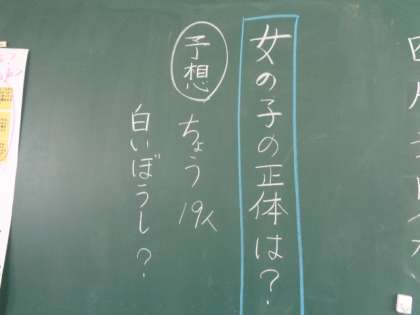 女の子の正体は？
予想
ちょう 19人
白いぼうし？